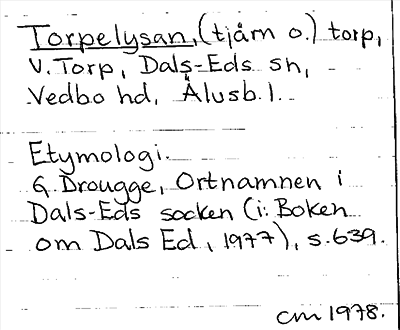 Torpelysan, (tjärn o.) torp,
V. Torp, Dals-Eds sn,
Vedbo hd, Älvsb. l.
Etymologi.
G. Drougge, Ortnamnen i
Dals-Eds socken (i: Boken
om Dals Ed, 1977), s. 639.
cm 1978.